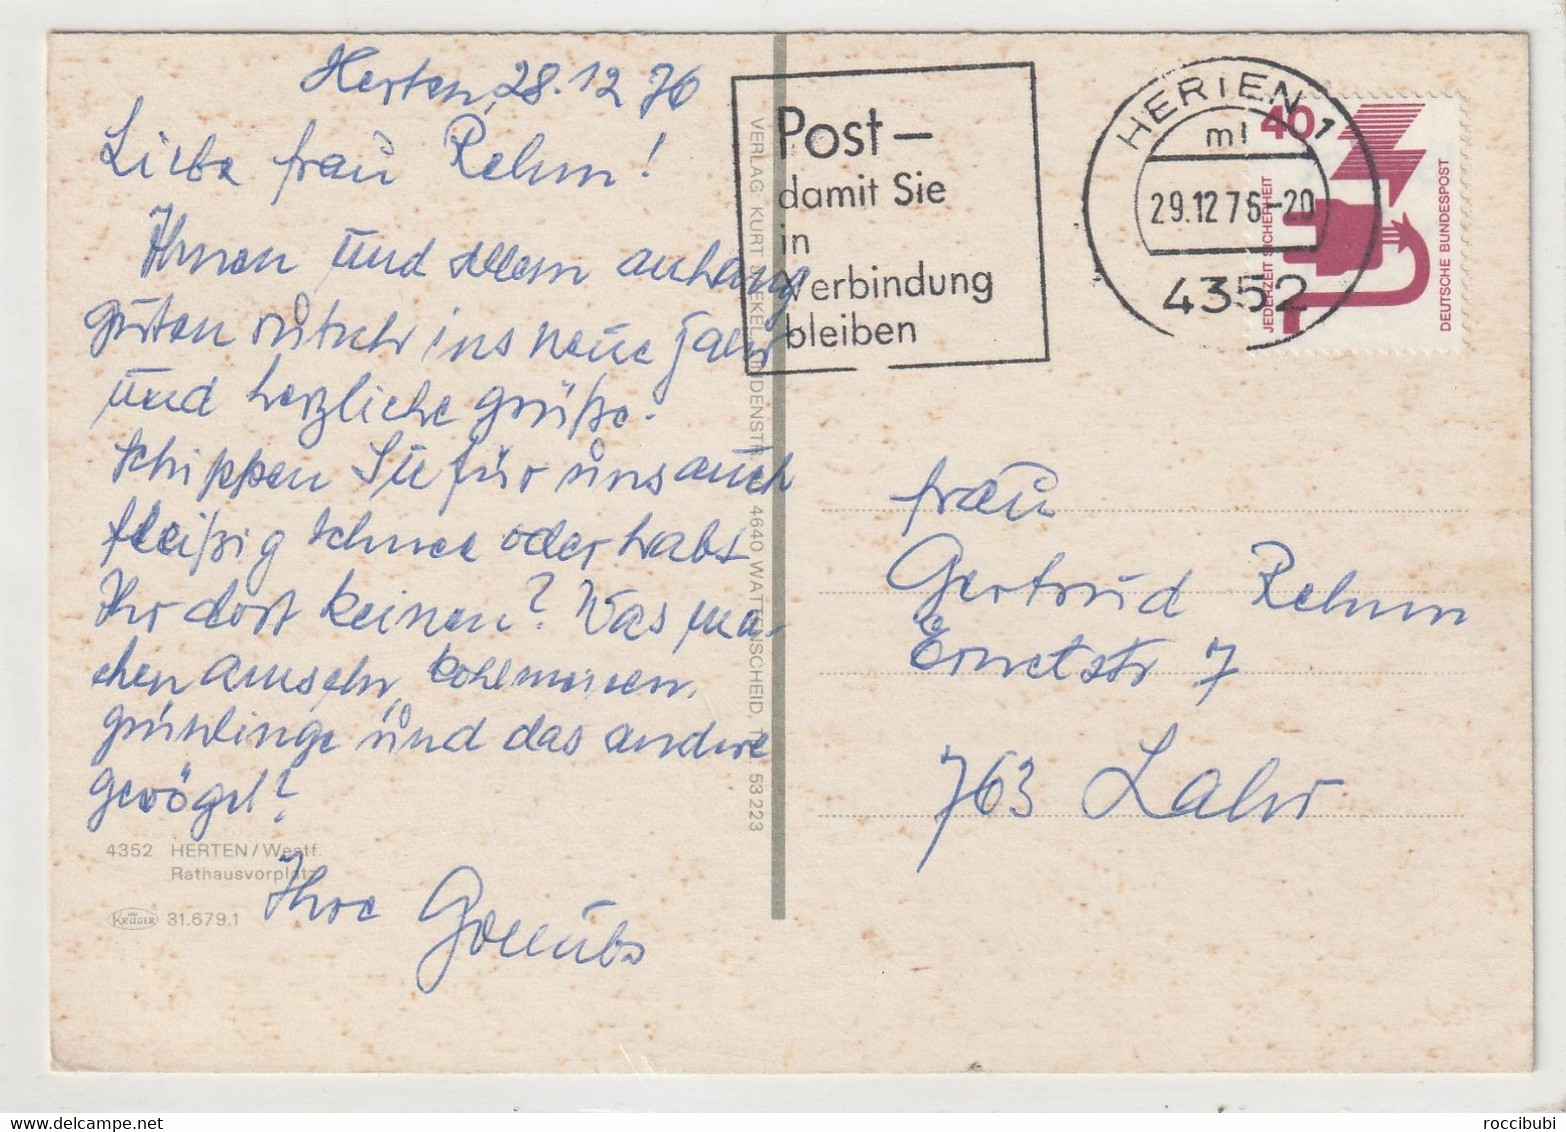 Herten, 28.12.76
Liebe Frau Rehm!
Ihnen und allem anhang
guten rutsch ins neue Jahr
und herzliche Grüße.
Schippen Sie für uns auch
fleißig Schnee oder habt
Ihr dort keinen? Was ma-
chen amseln, kohlmeisen,
grünlinge und das andere
gevögel?
Ihre
4352 HERTEN/Westf.
Rathausvorplatz
KRÜGER 31.679.1
VERLAG: KURT 4640 WATTENSCHEID, 53223
Post –
damit Sie
in
Verbindung
bleiben
HERTEN 1
ml
29.12.76-20
4352
40
JEDERZEIT SICHERHEIT
DEUTSCHE BUNDESPOST
Frau
Gertrud Rehm
Ernetstr 7
763 Lahr
roccibubi